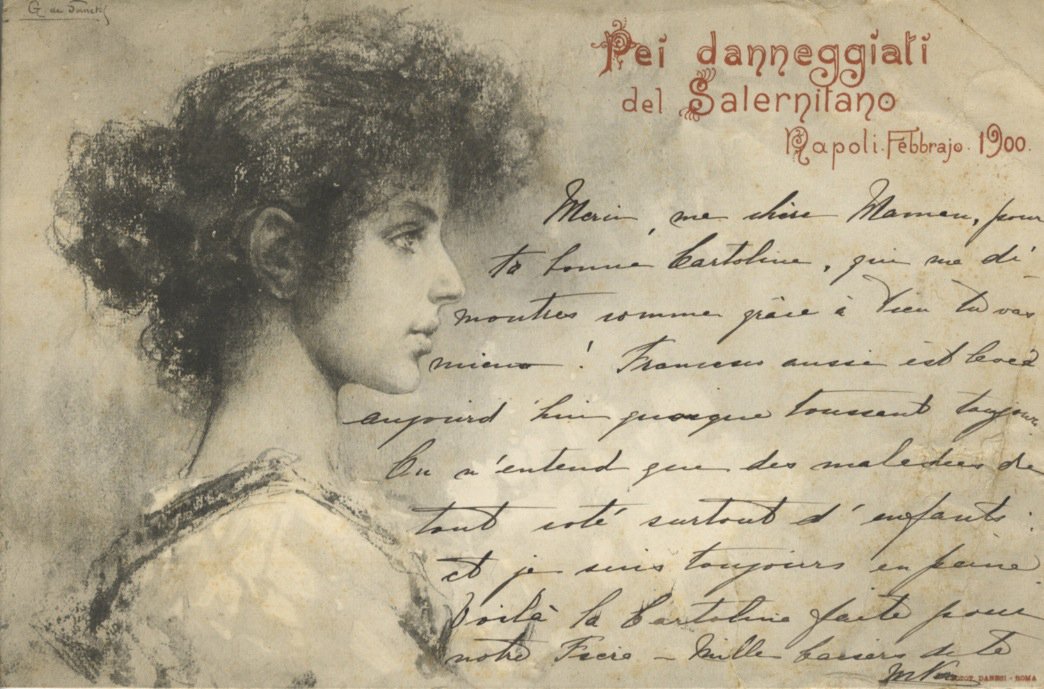 G. de Sanctis
Pei danneggiati
del Salernitano
Napoli. Febbrajo. 1900.
Merci, ma chère Maman, pour
ta bonne Cartoline, qui me dé-
montres comme grâce à Dieu tu vas
mieux! aussi est levée
aujourd'hui quoique toussant toujours.
On n'entend que des maladies de
tout coté surtout d'enfants:
et je suis toujours en peine.
Voilà la Cartoline faite pour
notre — Mille baisers de ta
DANESI - ROMA